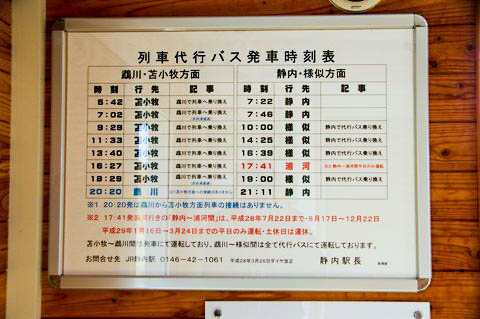 列車代行バス発車時刻表
鵡川・苫小牧方面
時刻 行先 記事
5:42 苫小牧 鵡川で列車へ乗り換え
7:02 苫小牧 鵡川で列車へ乗り換え
9:29 苫小牧 鵡川で列車へ乗り換え
11:33 苫小牧 鵡川で列車へ乗り換え
13:40 苫小牧 鵡川で列車へ乗り換え
16:27 苫小牧 鵡川で列車へ乗り換え
18:29 苫小牧 鵡川で列車へ乗り換え
20:20 鵡川 ※1苫小牧方面への接続はありません
静内・様似方面
時刻 行先 記事
7:22 静内
7:46 静内
10:00 様似 静内で代行バス乗り換え
14:25 様似 静内で代行バス乗り換え
16:00 様似 静内で代行バス乗り換え
17:41 浦河 ※2 静内〜浦河間平日のみ運転
19:00 様似 静内で代行バス乗り換え
21:11 静内
※1 20:20発は鵡川から苫小牧方面列車の接続はありません。
※2 17:41発浦河行きの「静内〜浦河間」は、平成28年7月22日まで・8月17日〜12月22日
平成29年1月16日〜3月24日までの平日のみ運転・土休日は運休。
苫小牧〜鵡川間は列車にて運転しており、鵡川〜様似間は全て代行バスにて運転しております。
お問合せ先 JR静内駅 0146-42-1061 平成28年3月26日ダイヤ改正 静内駅長